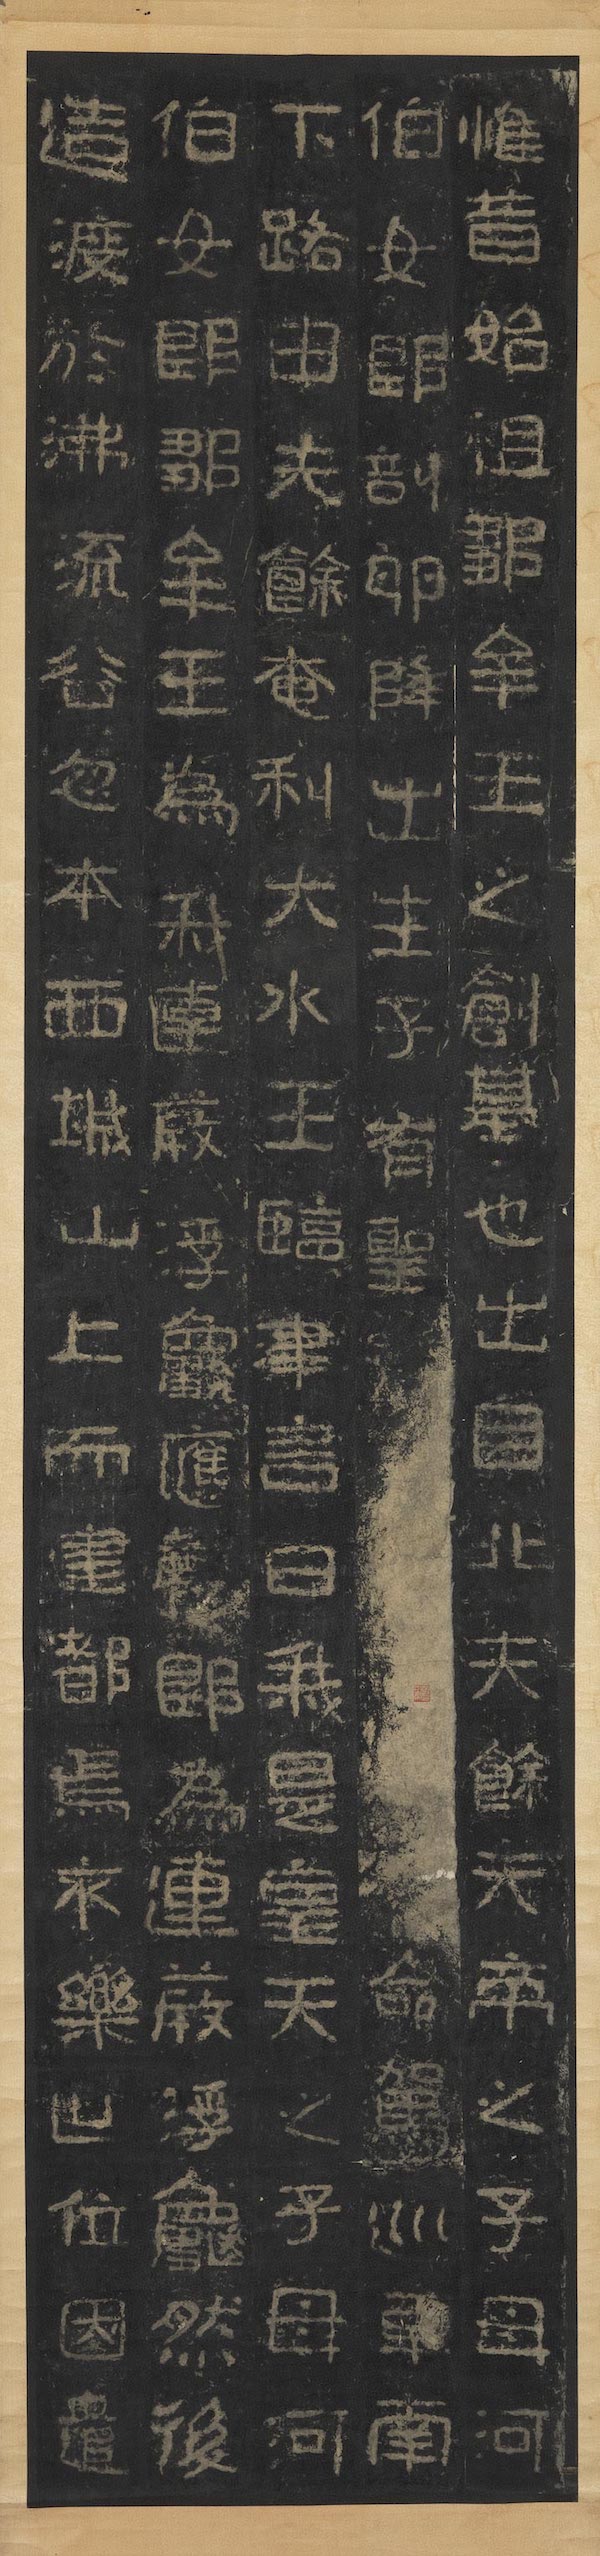 惟昔始祖鄒牟王之創基也出自北夫餘天帝之子母河
伯女郎剖卵降出生子有聖命駕巡車南
下路由夫餘奄利大水王臨津言曰我是皇天之子母河
伯女郎鄒牟王為我連葭浮龜應聲即為連葭浮龜然後
造渡於沸流谷忽本西城山上而建都焉不樂世位因遣